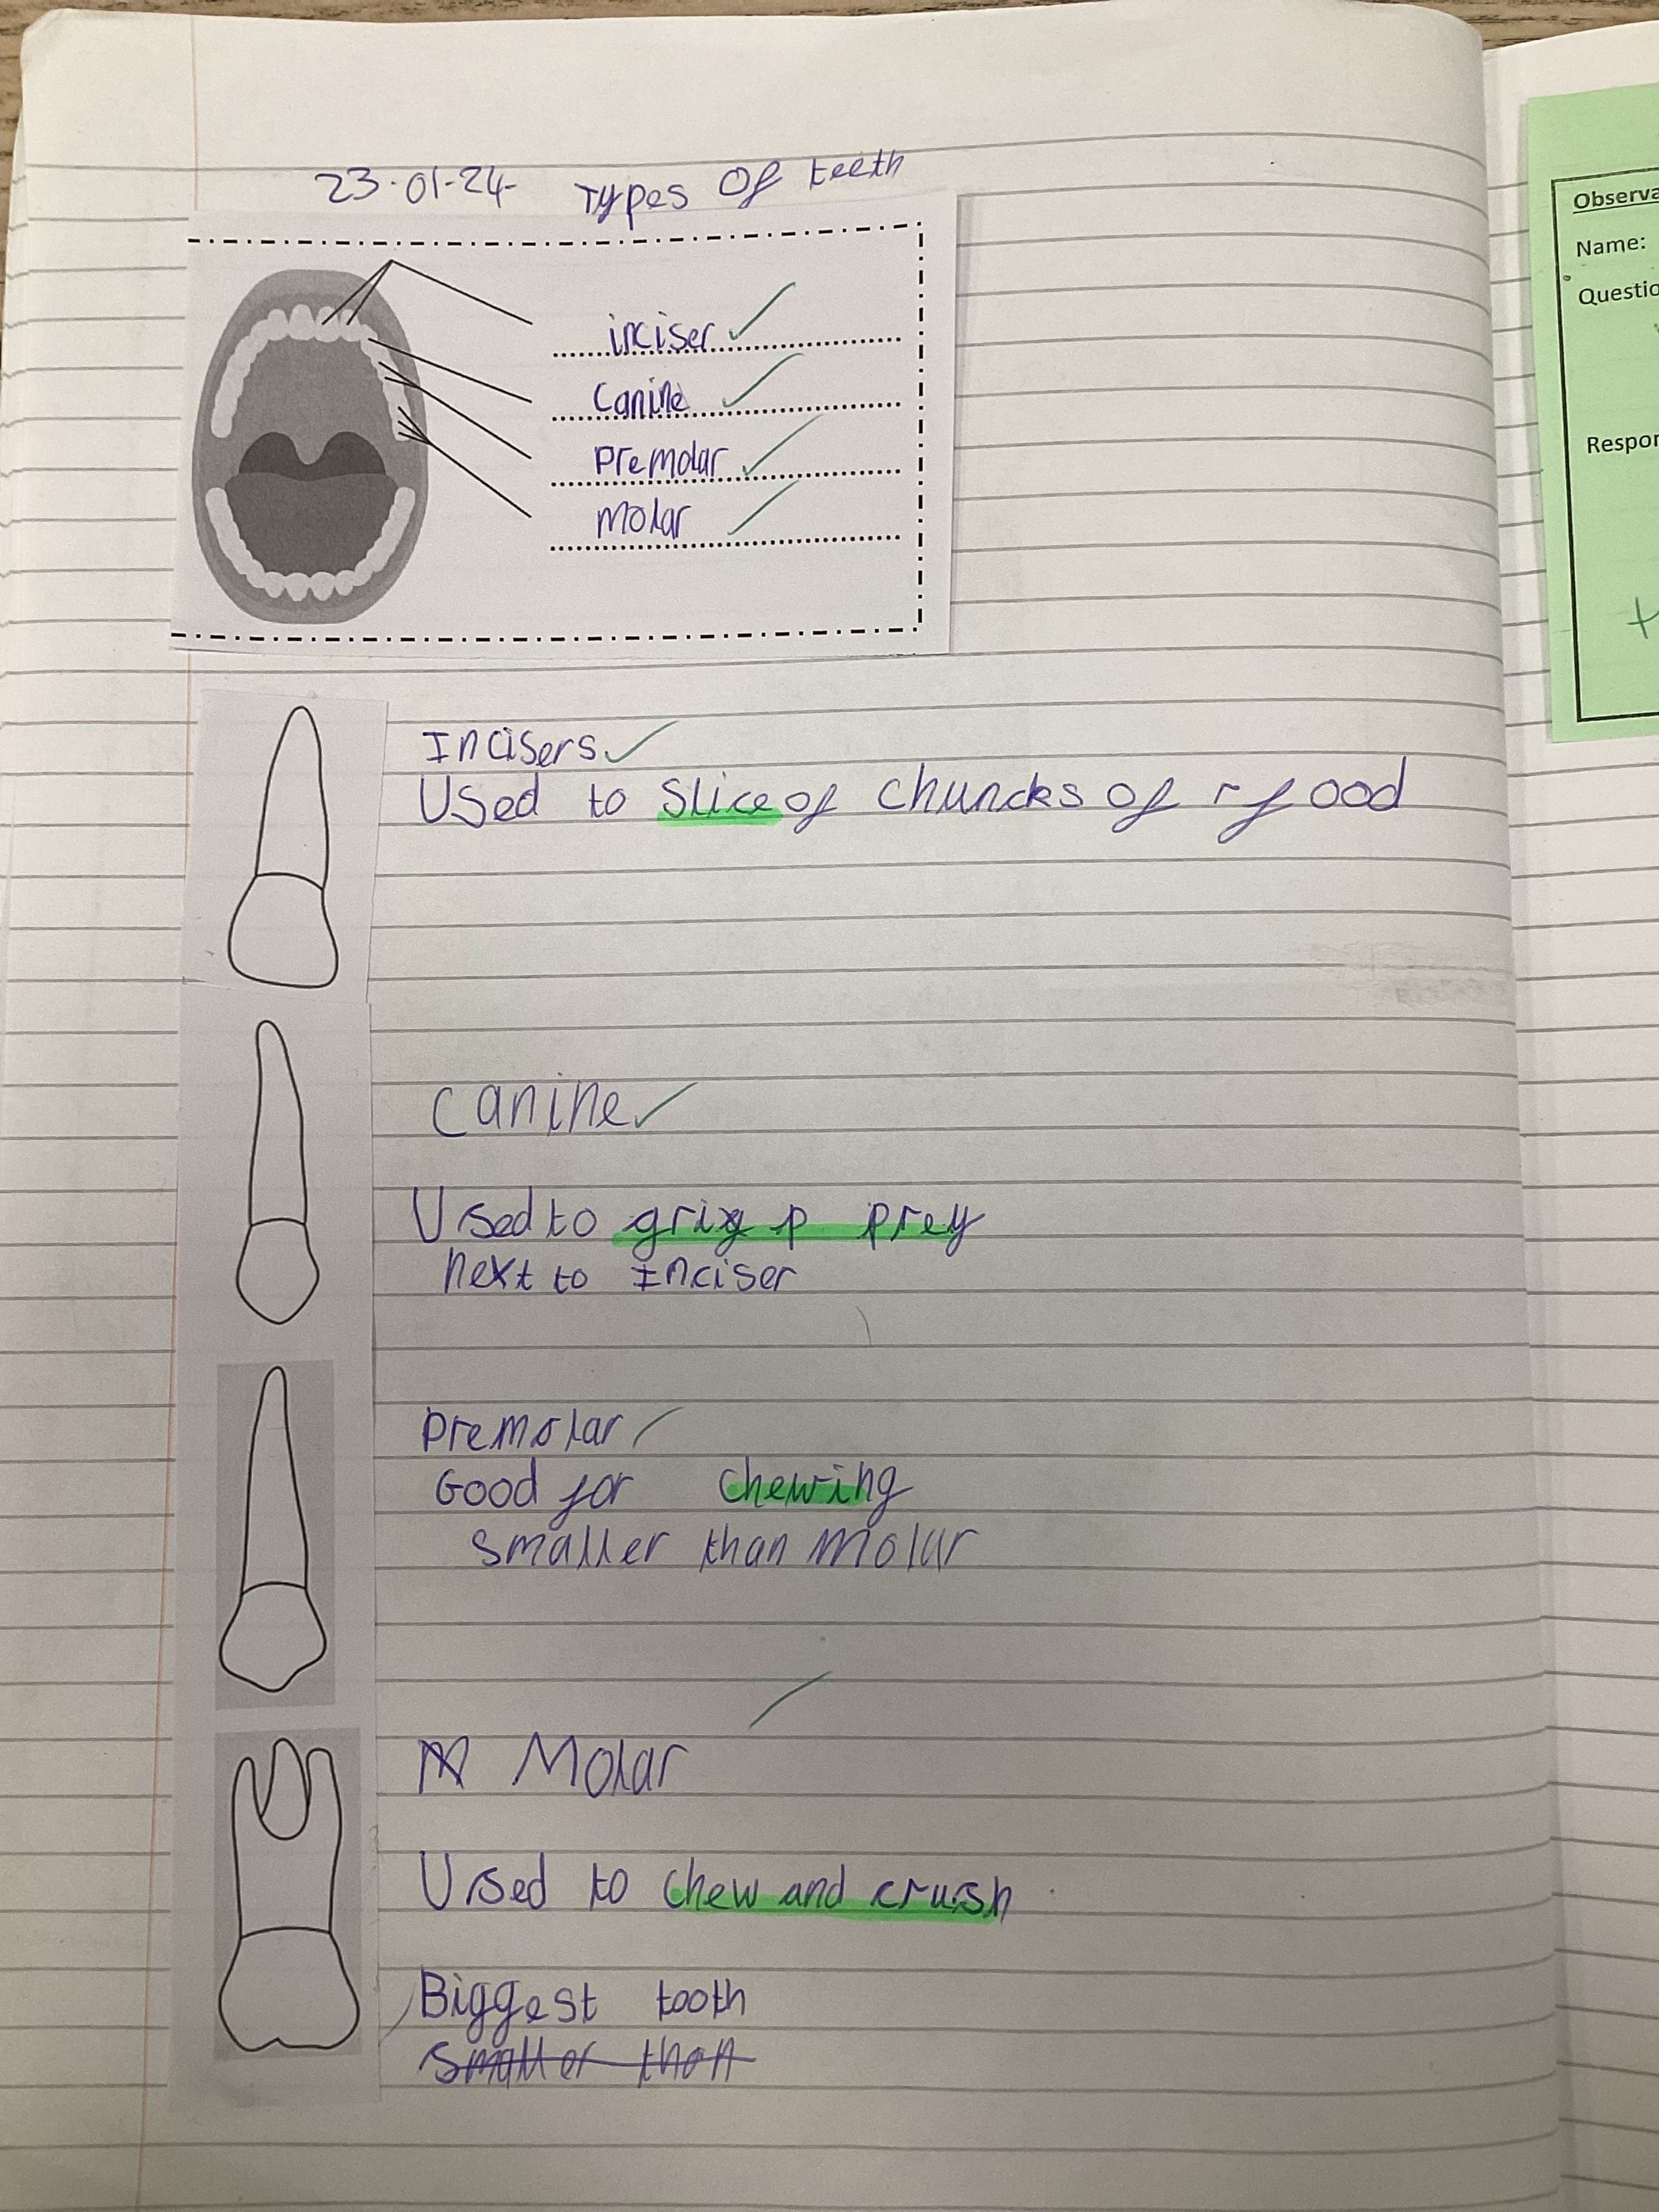 23.01.24 Types Of teeth
inciser
Canine
Premolar
molar
Incisers
Used to Slice of Chuncks of food
Canine
Used to grip prey
next to Inciser
Premolar
Good for chewing
smaller than molar
Molar
Used to chew and crush
Biggest tooth
smaller than
Observa
Name:
Questio
Respon